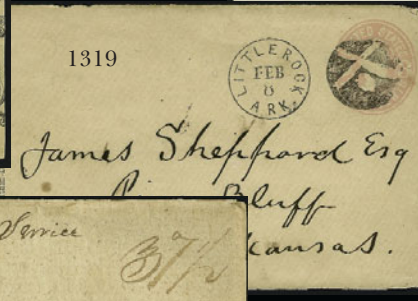 1319
LITTLE ROCK
FEB
8
ARK.
James Sheppard Esq
Bluff
kansas.
Service
37 1/2